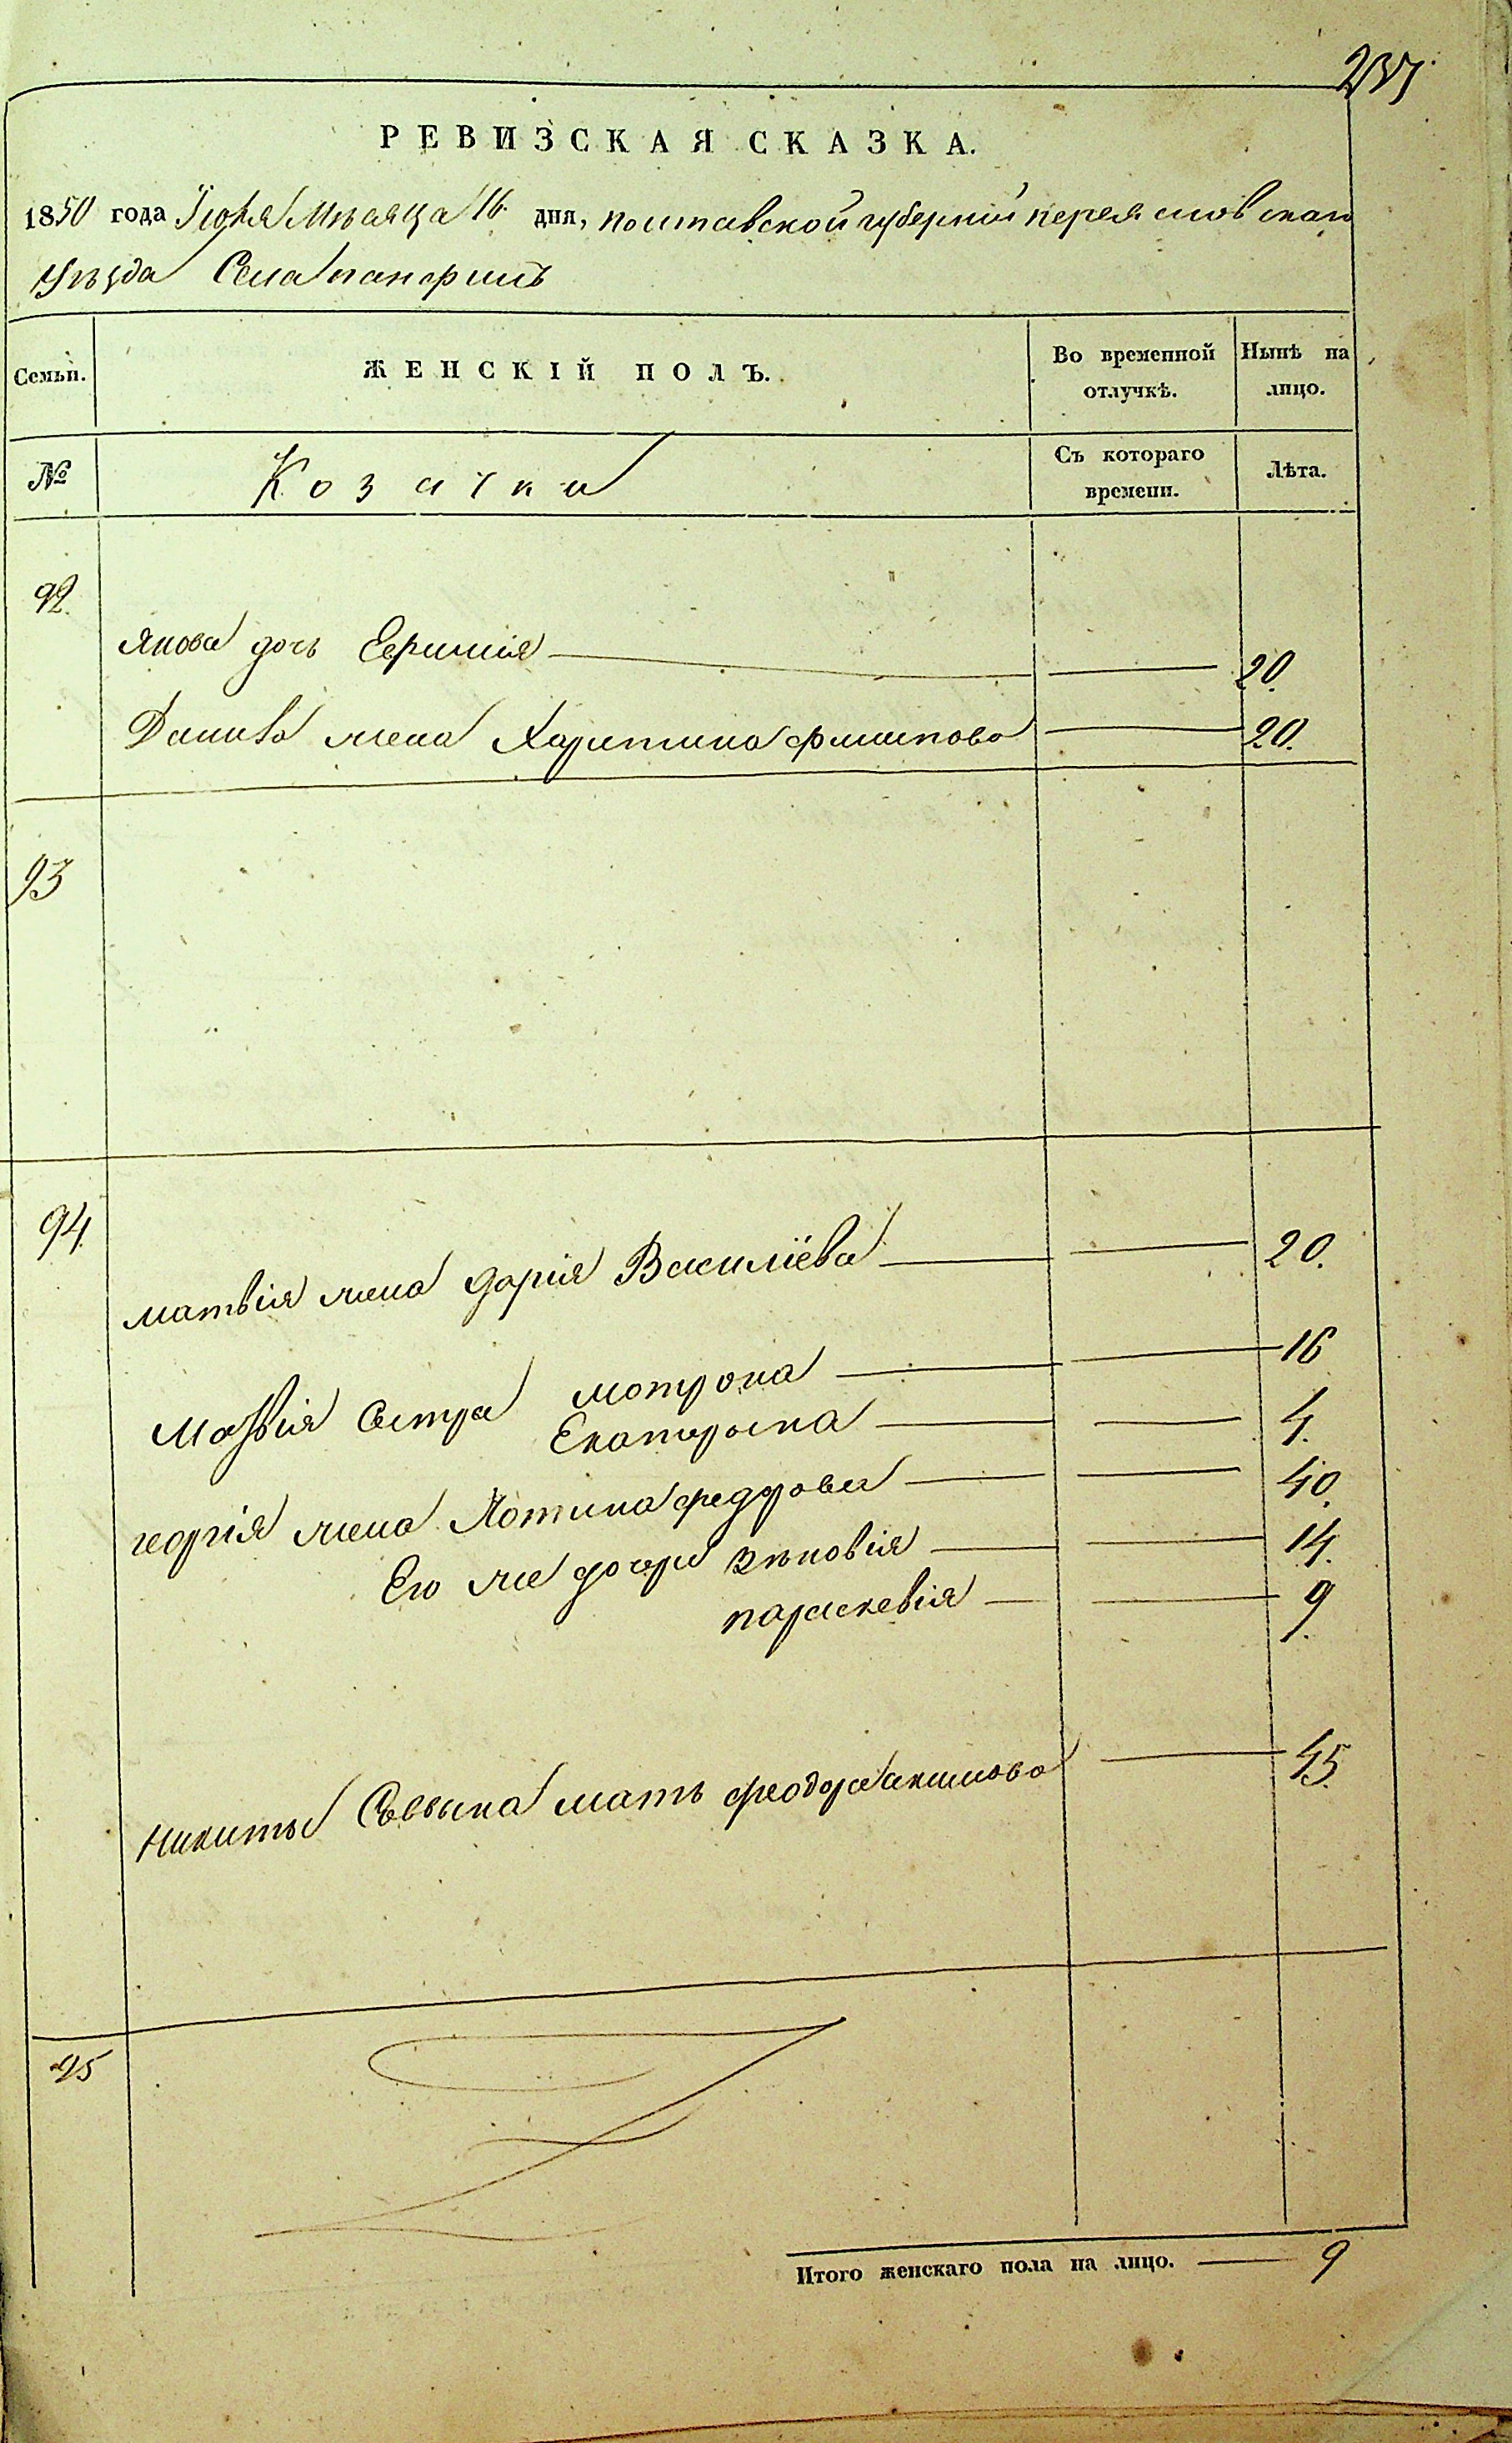 237
РЕВИЗСКАЯ СКАЗКА.
1850 года Іюня Мѣсяца 16 дня, полтавской губерніи переяславскаго
Уѣзда Села панфилъ
Семьи. ЖЕНСКІЙ ПОЛЪ. Во временной отлучкѣ. Нынѣ на лицо.
№ Козачки Съ котораго времени. Лѣта.
92
Якова дочь Евфимія 20.
Данила жена Харитина филипова 20.
93
94
матвія жена дарія Василіева 20.
Матвія сестра мотрона 16
Екатерина 4.
георгія жена федорова 40.
Его же дочери Зѣновія 14.
параскевія 9.
Никиты мать феодора акимова 45
95
Итого женскаго пола на лицо. 9